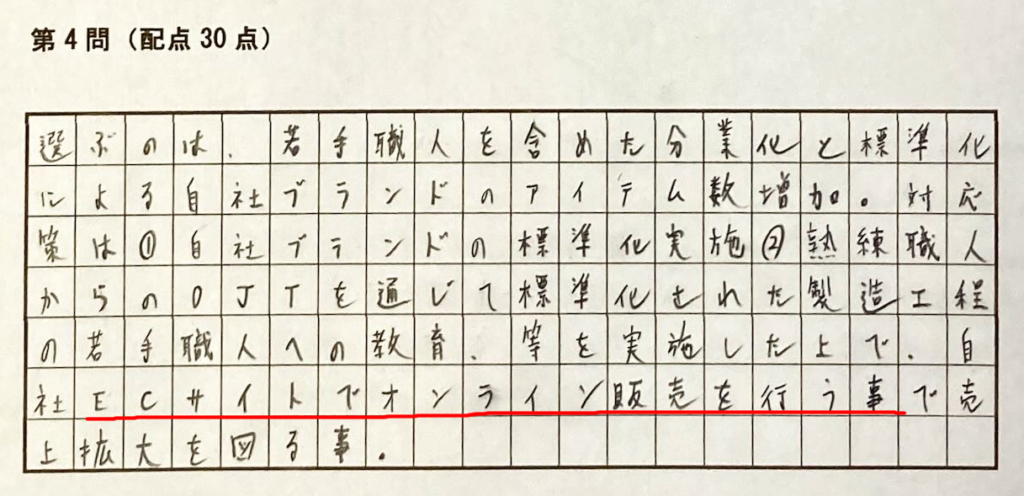 第4問(配点30点)
選ぶのは、若手職人を含めた分業化と標準化
による自社ブランドのアイテム数増加。対応
策は①自社ブランドの標準化実施②熟練職人
からのOJTを通じて標準化された製造工程
の若手職人への教育、等を実施した上で、自
社ECサイトでオンライン販売を行う事で売
上拡大を図る事。